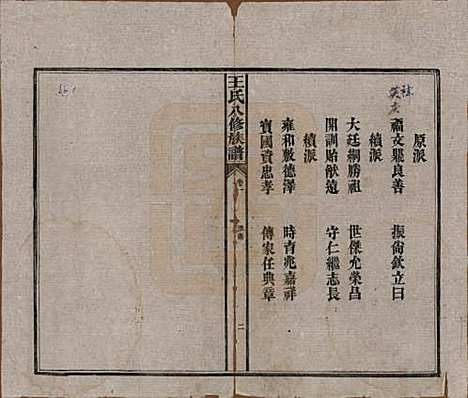 原派
福文興良善　振尙欽立曰
續派
大廷嗣勝祖　世傑允榮昌
開訓貽猷遠　守仁繼志長
續派
雍和敷德澤　時青兆嘉祥
寶國資忠孝　傳家任典章
王氏八修族譜
卷一
二